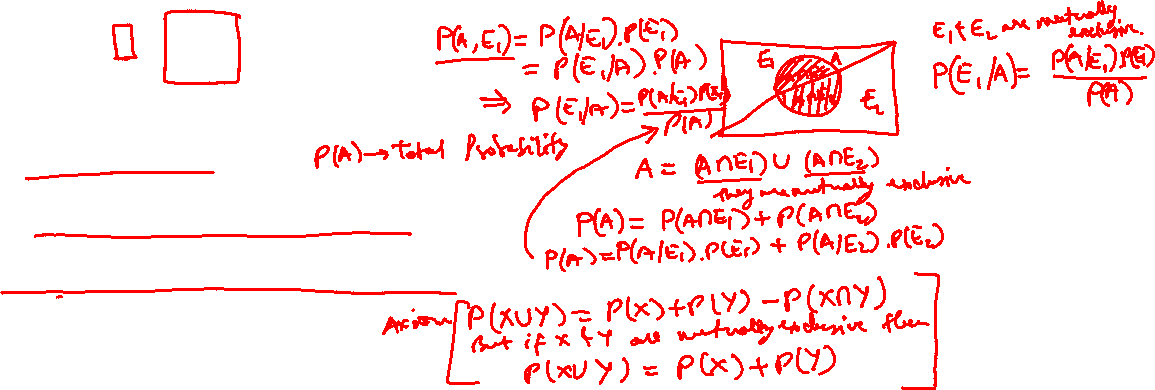 P(A, E₁) = P(A/E₁).P(E₁)
= P(E₁/A).P(A)
⇒ P(E₁/A) = P(A/E₁)P(E₁) / P(A)
E₁ A E₂
E₁ & E₂ are mutually exclusive.
P(E₁/A) = P(A/E₁).P(E₁) / P(A)
P(A) → Total Probability
A = (A∩E₁) ∪ (A∩E₂)
they are mutually exclusive
P(A) = P(A∩E₁) + P(A∩E₂)
P(A) = P(A/E₁).P(E₁) + P(A/E₂).P(E₂)
Axiom [P(X∪Y) = P(X) + P(Y) − P(X∩Y)
But if X & Y are mutually exclusive then
P(X∪Y) = P(X) + P(Y)]